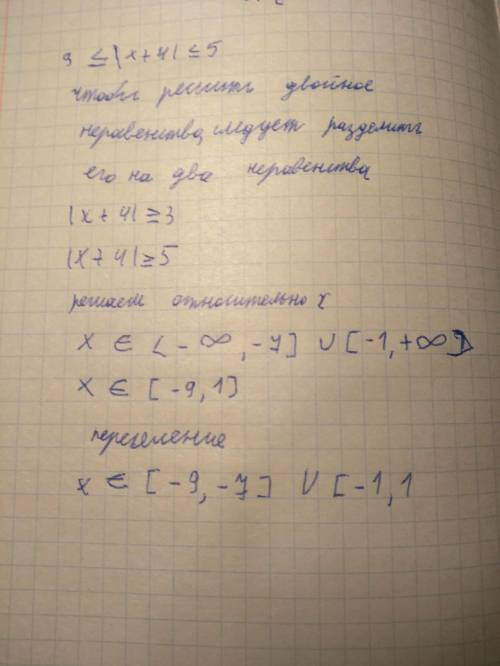 3 ≤ |x+4| ≤ 5
чтобы решить двойное
неравенства, следует разделить
его на два неравенства
|x + 4| ≥ 3
|x + 4| ≥ 5
решаем относительно x
x ∈ < -∞, -7] ∪ [-1, +∞>
x ∈ [-9, 1]
x ∈ [-9, -7] ∪ [-1, 1